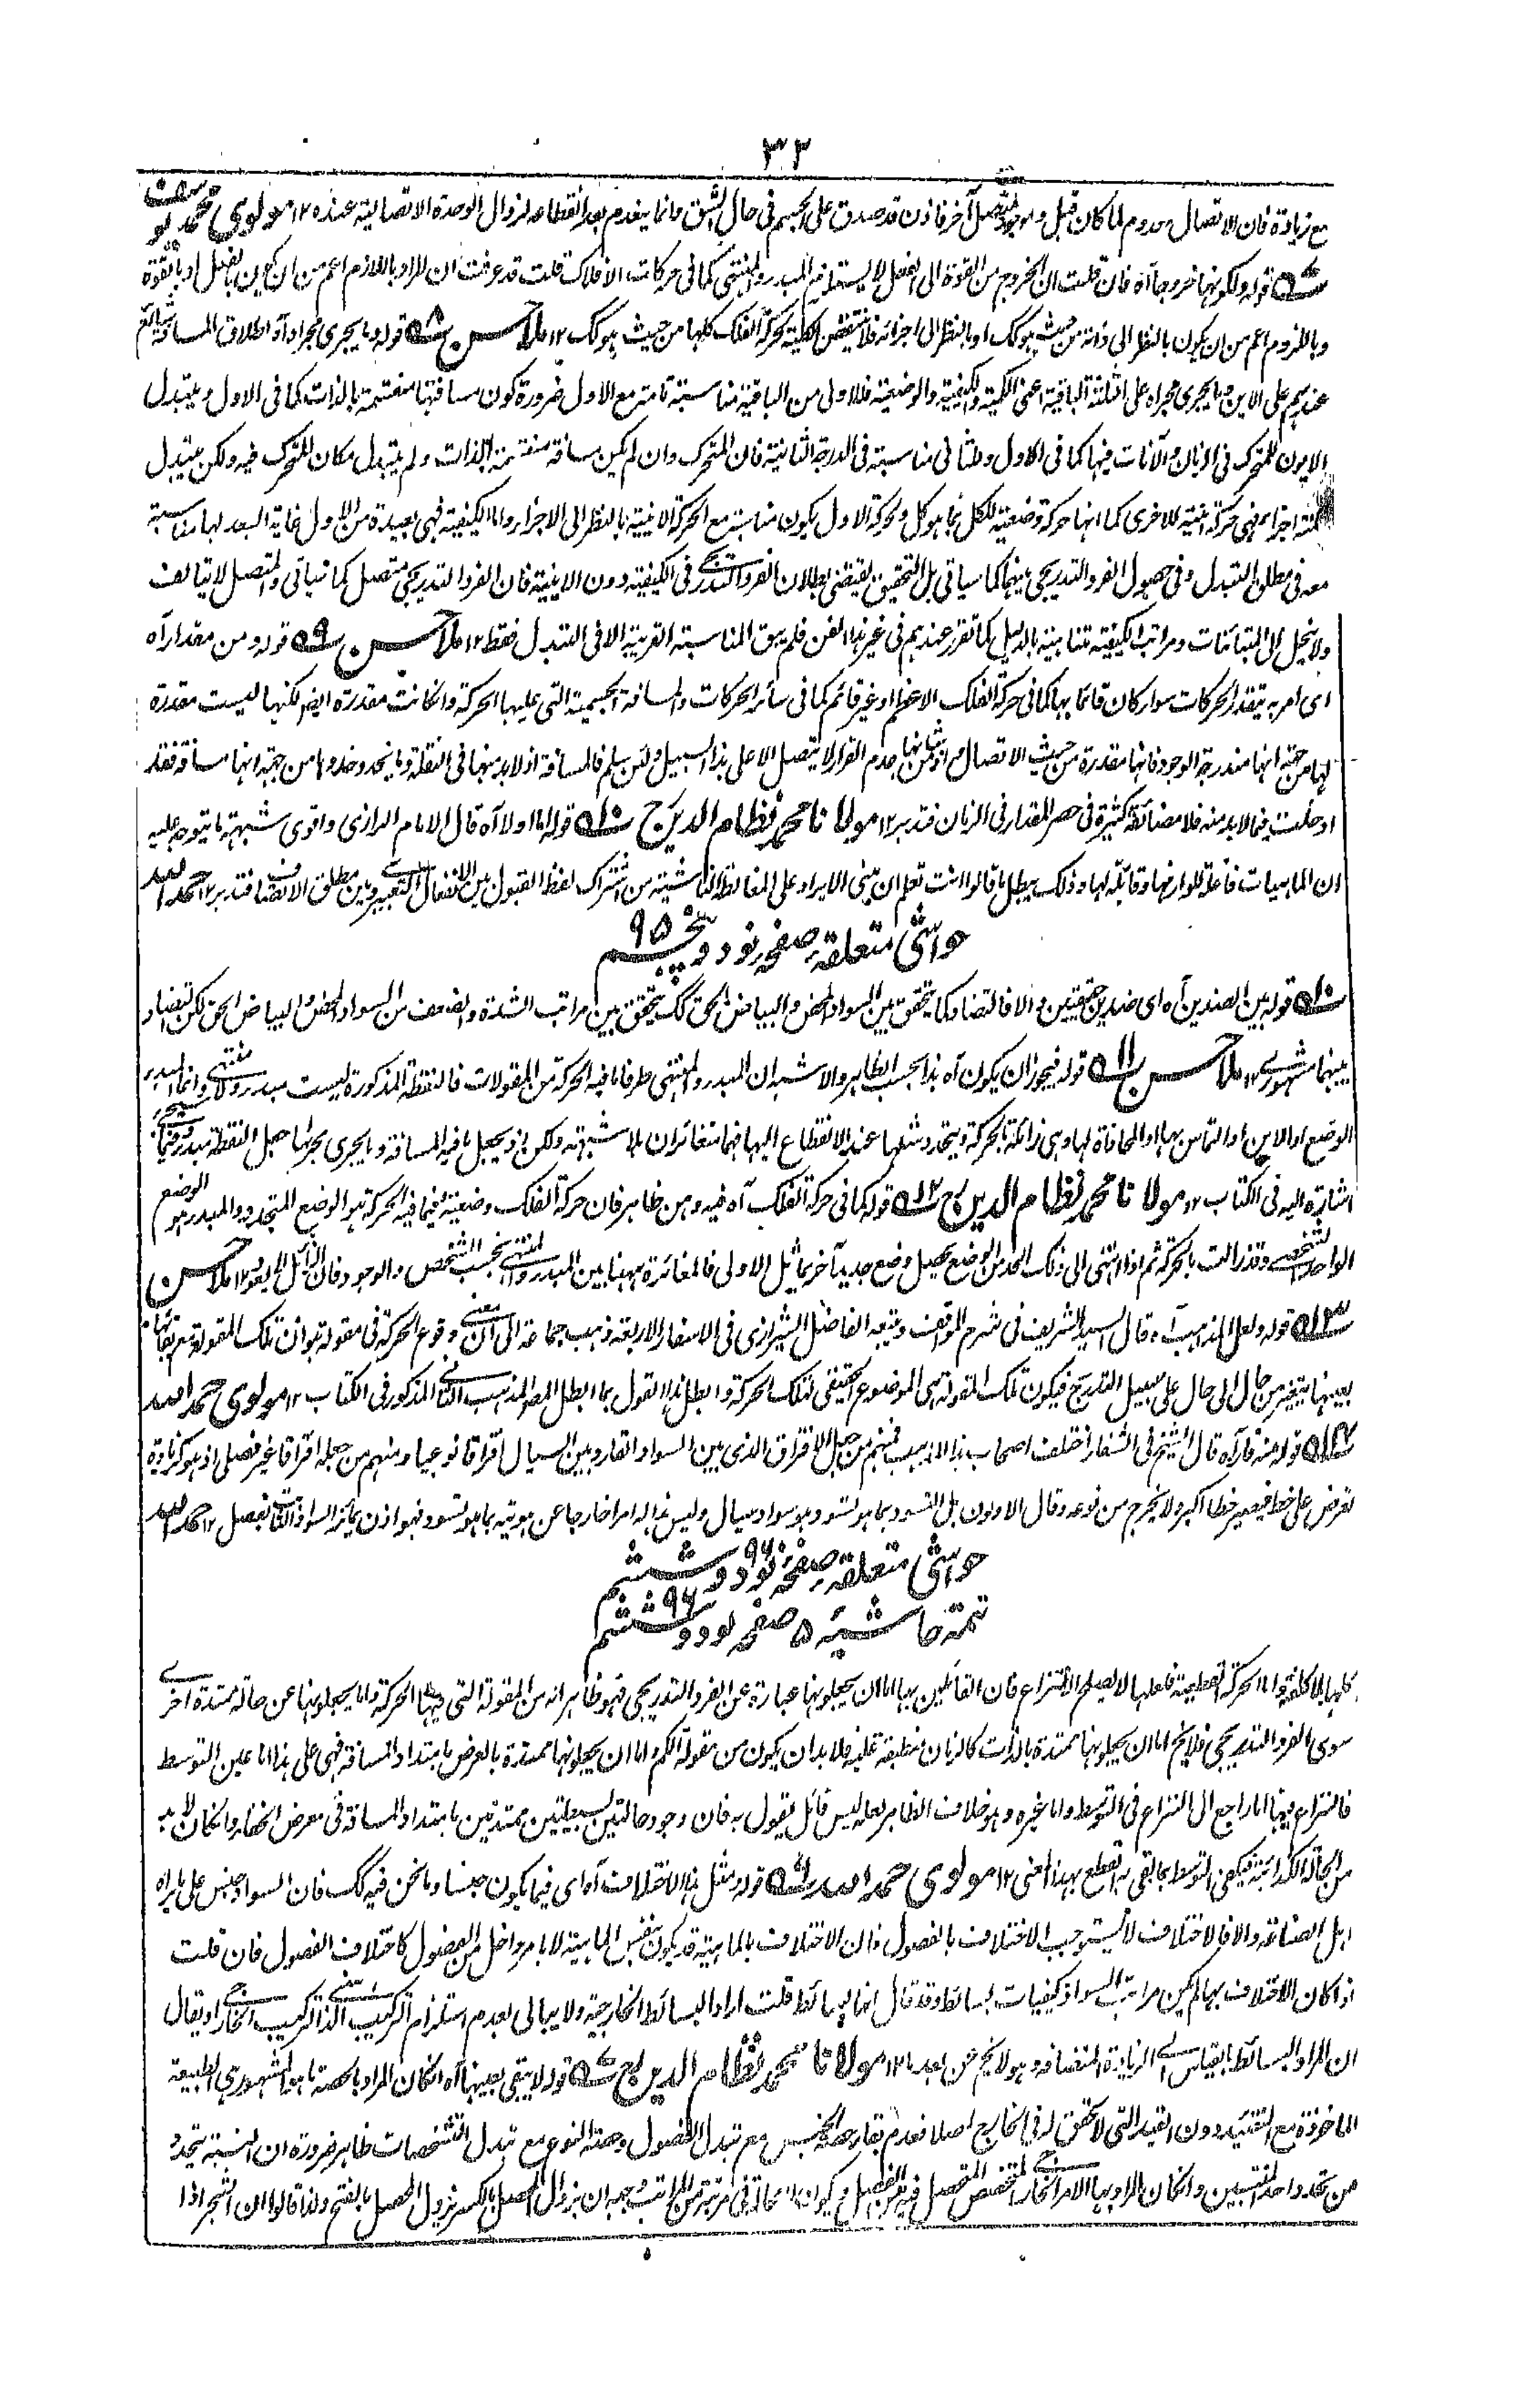 ٣٢
مع زيادة فان الاتصال معدوم لما كان قبل وموجود متصل آخر فاذن قد صدق على الجسم فى حال الشق وانما ينعدم بعد انقطاعه لزوال الوحدة الاتصالية عنده ١٢ مولوي محمد يوسف
قوله ولكونها خروجا آه فان قلت ان الخروج من القوة الى الفعل لا يستلزم المبدء والمنتهى كما فى حركات الافلاك قلت قد عرفت ان المراد باللازم اعم من ان يكون بالفعل او بالقوة
وبالملزوم اعم من ان يكون بالنظر الى ذاته من حيث هو كك او بالنظر الى اجزائه فلا ينتقض الكلية بحركة الفلك كلها من حيث هو كك ١٢ ملا حسن ٨ قوله وما يجرى مجراه آه اطلاق المسافة
عندهم على الاين وما يجرى مجراه على الثلثة الباقية اعنى الكمية والكيفية والوضعية فللاولى من الباقية مناسبة تامة مع الاول ضرورة كون مسافتها منقسمة بالذات كما فى الاول ويتبدل
الايون للمتحرك فى الزمان والآنات فيها كما فى الاول وللثانى مناسبة فى الدرجة الثانية فان المتحرك وان لم يكن مسافة منقسمة بالذات ولم يتبدل مكان المتحرك فيه ولكن يتبدل
امكنة اجزائه فهى حركة اينية للاخرى كما انها حركة وضعية للكل بما هو كل وحركة الاول يكون مناسبة مع الحركة الاينية بالنظر الى الاجزاء واما الكيفية فهى بعيدة من الاول غاية البعد لها مناسبة
معه فى مطلق التبدل وفى حصول الفرد التدريجى بينهما كما سياتى بل التحقيق يقتضى بطلان الفرد التدريجى فى الكيفية دون الاينية فان الفرد التدريجى متصل كما سياتى والمتصل لا يتالف
ولا ينحل الى المتبائنات ومراتب الكيفية متبائنة بالدليل كما تقرر عندهم فى غير هذا الفن فلم يبق المناسبة القريبة الا فى التبدل فقط ١٢ ملا حسن ٩ قوله ومن مقدار آه
اى امر به يتقدر الحركات سواء كان قائما بها كما فى حركة الفلك الاعظم او غير قائم كما فى سائر الحركات والمسافة الجسمية التى عليها الحركة وان كانت مقدرة ايضا لكنها ليست مقدرة
لها من جهة انها متدرجة الوجود فانها مقدرة من حيث الاتصال ومن شانها عدم القرار لا يتصل الا على هذا السبيل ولئن سلم فالمسافة اذ لا بد منها فى النقلة وما ينحو نحوها من جهة انها مسافة فقد
ادخلت فيما لا بد منه فلا مضائقة كثيرة فى حصر المقدار فى الزمان فتدبر ١٢ مولانا محمد نظام الدين رح ١٠ قوله اما اولا آه قال الامام الرازى واقوى شبهة ما يتوجه عليه
ان الماهيات فاعلة للوازمها وقابلة لها وذلك يبطل ما قالوا انت تعلم ان مبنى الايراد على المغالطة الناشية من اشتراك لفظ القبول بين الانفعال التغيرى وبين مطلق الاتصاف فتدبر ١٢ حمد الله
حواشى متعلقه صفحه نود و پنجم ٩٥
١٠ قوله بين الضدين آه اى ضدين حقيقيين والا فالتضاد كما يتحقق بين السواد المحض والبياض الحق كك يتحقق بين مراتب الشدة والضعف من السواد المحض والبياض الحق لكن التضاد
بينهما مشهورى ١٢ ملا حسن ١١ قوله فيجوز ان يكون آه هذا بحسب الظاهر والاشبه ان المبدء والمنتهى طرفا ما فيه الحركة من المقولات فالنقطة المذكورة ليست مبدء ولا منتهى وانما المبدء
الوضع او الاين او التماس بها او المحاذاة لها وهى زائلة بالحركة ويتجدد مثلها عند الانقطاع اليها فهما متغائران بلا شبهة ولكن اذ يجعل ما فيه المسافة وما يجرى مجراها جعل النقطة مبدء
اشارة اليه فى الكتاب ١٢ مولانا محمد نظام الدين رح ١٢ قوله كما فى حركة الفلك آه فيه وهن ظاهر فان حركة الفلك وضعية فيما فيه الحركة هو الوضع المتجدد والمبدء هو الوضع
الواحد الشخصى وقد زالت بالحركة ثم اذا انتهى الى ذلك الحد من الوضع يحصل وضع جديد آخر يماثل الاولى فالمغائرة ههنا بين المبدء والمنتهى بحسب الشخص والوجود فان الزائل لا يعود ١٢ ملا حسن
١٣ قوله ولعل المذهب آه قال السيد الشريف فى شرح المواقف وتبعه الفاضل الشيرازى فى الاسفار الاربعة ذهب جماعة الى ان معنى وقوع الحركة فى مقولة هو ان تلك المقولة مع بقائها
بعينها يتغير من حال الى حال على سبيل التدريج فيكون تلك المقولة هى الموضوع الحقيقى لتلك الحركة وابطل هذا القول بما ابطل المصنف المذهب الثانى المذكور فى الكتاب ١٢ مولوى حمد الله
١٤ قوله منه قار آه قال الشيخ فى الشفا اختلف اصحاب هذا المذهب فمنهم من جعل الافتراق الذى بين السواد القار وبين السيال افتراقا نوعيا ومنهم من جعله افتراقا غير فصلى اذ هو كزيادة
تعرض على خط فيصير خطا اكبر ولا يخرج من نوعه وقال الاولون بل التسود بما هو تسود هو سواد سيال وليس هذا له امرا خارجا عن هويته بما هو تسود فهو اذن يمايز السواد الثابت بفصل ١٢ حمد الله
حواشى متعلقه صفحه نود و ششم ٩٦
تتمة حاشيه ٥ صفحه نود و ششم ٩٦
كلها بلا كلفة واما الحركة القطعية فلعلها لا يصلح الانتزاع فان القائلين بها اما ان يجعلونها عبارة عن الفرد التدريجى فهو ظاهر انه من المقولة التى فيها الحركة واما يجعلونها عن حالة ممتدة اخرى
سوى الفرد التدريجى فلا يخ اما ان يجعلونها ممتدة بالذات كالزمان منطبقة عليه فلا بد ان يكون من مقولة الكم واما ان يجعلونها ممتدة بالعرض بامتداد المسافة فهى على هذا اما عين التوسط
فالنزاع فيها اما راجع الى النزاع فى التوسط واما غيره وهو خلاف الظاهر لعله ليس قائل يقول به فان وجود حالتين بسيطتين ممتدتين بامتداد المسافة فى معرض الخفاء وان كان لا بد
من الحالة الكذائية فيكفى التوسط بما بقى به القطع بهذا المعنى ١٢ مولوى حمد الله قوله ومثل هذا الاختلاف آه اى فيما يكون جنسا وما نحن فيه كك فان السواد جنس على ما يراه
اهل الصناعة والا فالاختلاف لا يستوجب الاختلاف بالفصول فان الاختلاف بالماهية قد يكون بنفس الماهية لا بامر داخل من الفصول كاختلاف الفصول فان قلت
اذا كان الاختلاف بها لم يكن مراتب السواد كيفيات بسائط وقد قال انها بسائط قلت اراد البسائط الخارجية ولا يبالى بعدم استلزام التركيب الذهنى التركيب الخارجى او يقال
ان المراد البسائط بالقياس الى الزيادة المنضافة وهو لا يخ عن بعد ١٢ مولانا محمد نظام الدين رح قوله لا يبقى بعينها آه ان كان المراد بالحصة ما هو المشهور اى الطبيعة
الماخوذة مع التقييد دون القيد التى لا تحقق له فى الخارج اصلا فعدم بقاء حصة الجنس مع تبدل الفصول وحصة النوع مع تبدل التشخصات ظاهر ضرورة ان النسبة يتجدد
من تجدد احد المنتسبين وان كان المراد بها الامر الخارجى المتخصص المتحصل فيه بزوال المحصل بالكسر يزول المحصل بالفتح ولذا قالوا ان الشجر اذا